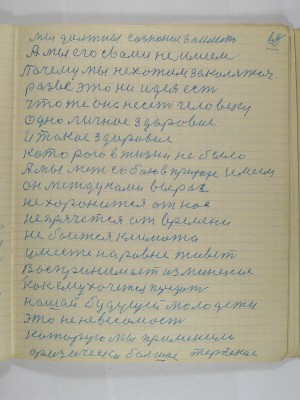 68
мы должны сознони заиметь
А мы его с вами не имеем
Почему мы не хотим закалятся
разве это ни идея есть
что же она несет человеку
Одно личное здаровие
И такое здаровие
которого в тизни не было
А мы меж собою в природе имеем
он между нами вырас
не хоронится от нас
не прячется от времени
не боится климота
а место наровне живет
Воспринимает изминение
как ему хочется
нашей будущей молодежи
это не невесомость
которую мы применяем
физически большое терпение